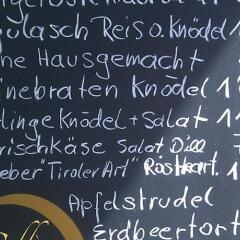 gulasch Reis o. Knödel 1
ne Hausgemacht
inebraten Knödel 1
linge Knödel + Salat 1
rischkäse Salat Dill
eber "Tiroler Art" Röstkart. 1
Apfelstrudel
Erdbeertort